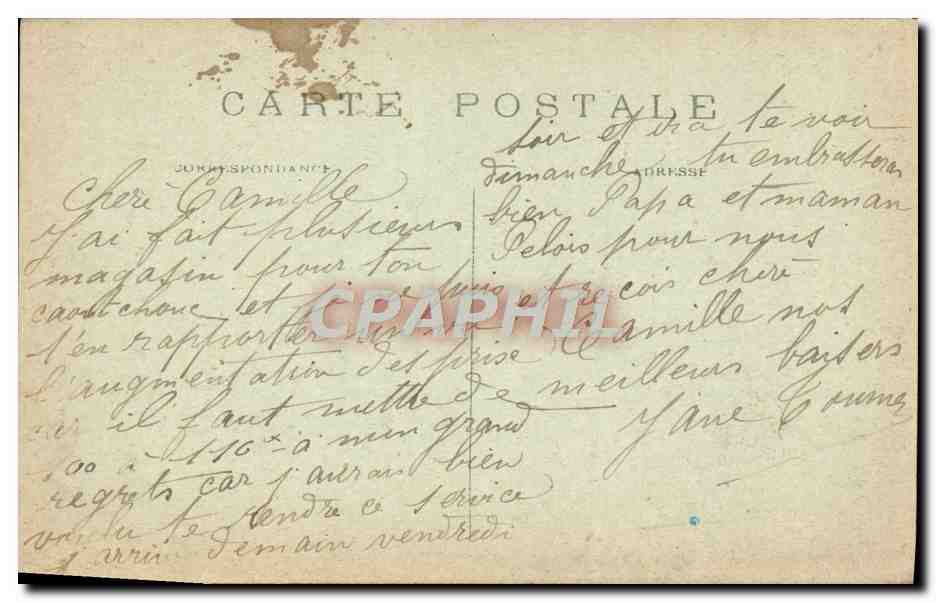 CARTE POSTALE
CORRESPONDANCE
ADRESSE
Cherè Camille
J'ai fait plusieurs
magasin pour ton
caoutchouc et je ne puis
t'en rapporter
l'augmentation des prise
car il faut mettre
100 à 110 à mon grand
regrets car j'aurai bien
voulu te rendre ce service
j'arrive demain vendredi
soir et ira te voir
dimanche tu embrassera
bien Papa et maman
Pelois pour nous
et reçois cherè
Camille nos
de meilleurs baisers
Jane
CPAPHIL